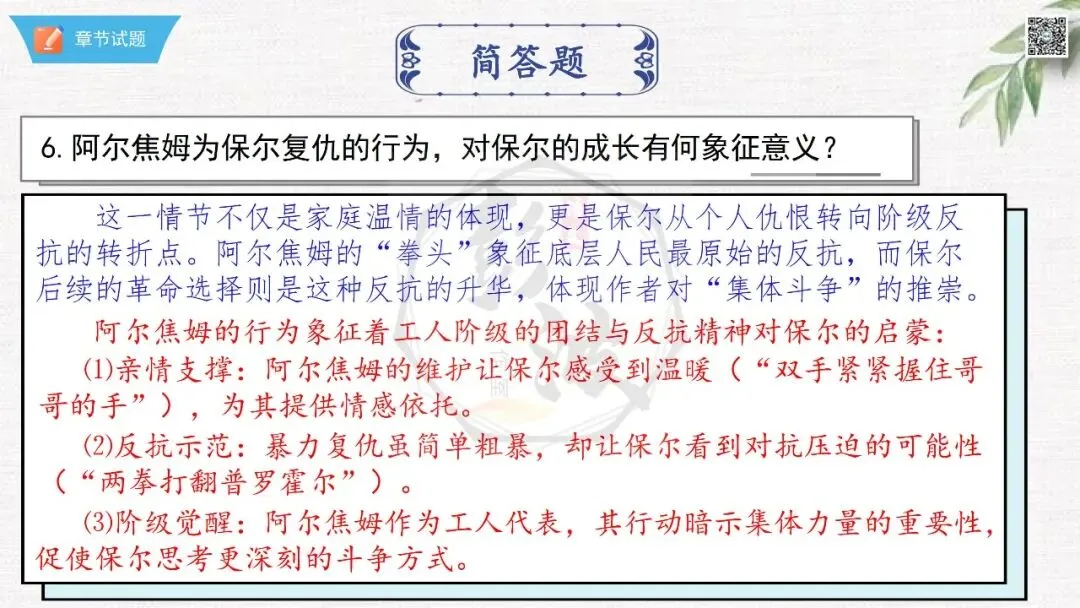 章节试题
简答题
6.阿尔焦姆为保尔复仇的行为，对保尔的成长有何象征意义？
这一情节不仅是家庭温情的体现，更是保尔从个人仇恨转向阶级反
抗的转折点。阿尔焦姆的“拳头”象征底层人民最原始的反抗，而保尔
后续的革命选择则是这种反抗的升华，体现作者对“集体斗争”的推崇。
阿尔焦姆的行为象征着工人阶级的团结与反抗精神对保尔的启蒙：
(1)亲情支撑：阿尔焦姆的维护让保尔感受到温暖（“双手紧紧握住哥
哥的手”），为其提供情感依托。
(2)反抗示范：暴力复仇虽简单粗暴，却让保尔看到对抗压迫的可能性
（“两拳打翻普罗霍尔”）。
(3)阶级觉醒：阿尔焦姆作为工人代表，其行动暗示集体力量的重要性，
促使保尔思考更深刻的斗争方式。